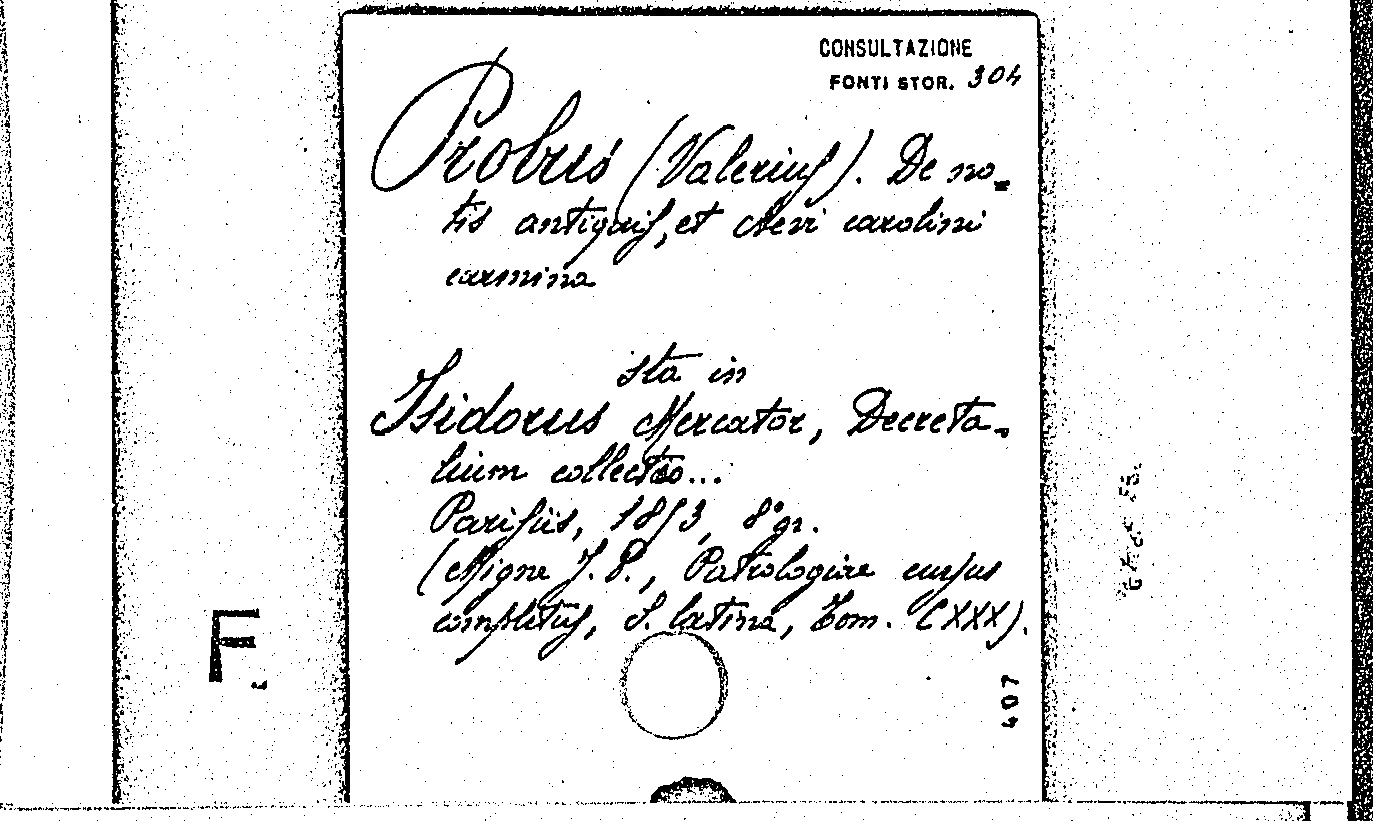 CONSULTAZIONE
FONTI STOR. 304
Probus (Valerius). De no-
tis antiquis, et Aevi carolini
carmina
sta in
Isidorus Mercator, Decreta-
lium collectio...
Parisiis, 1853, 8° gr.
(Migne J. P., Patrologiae cursus
completus, S. latina, Tom. CXXX).
407
F.